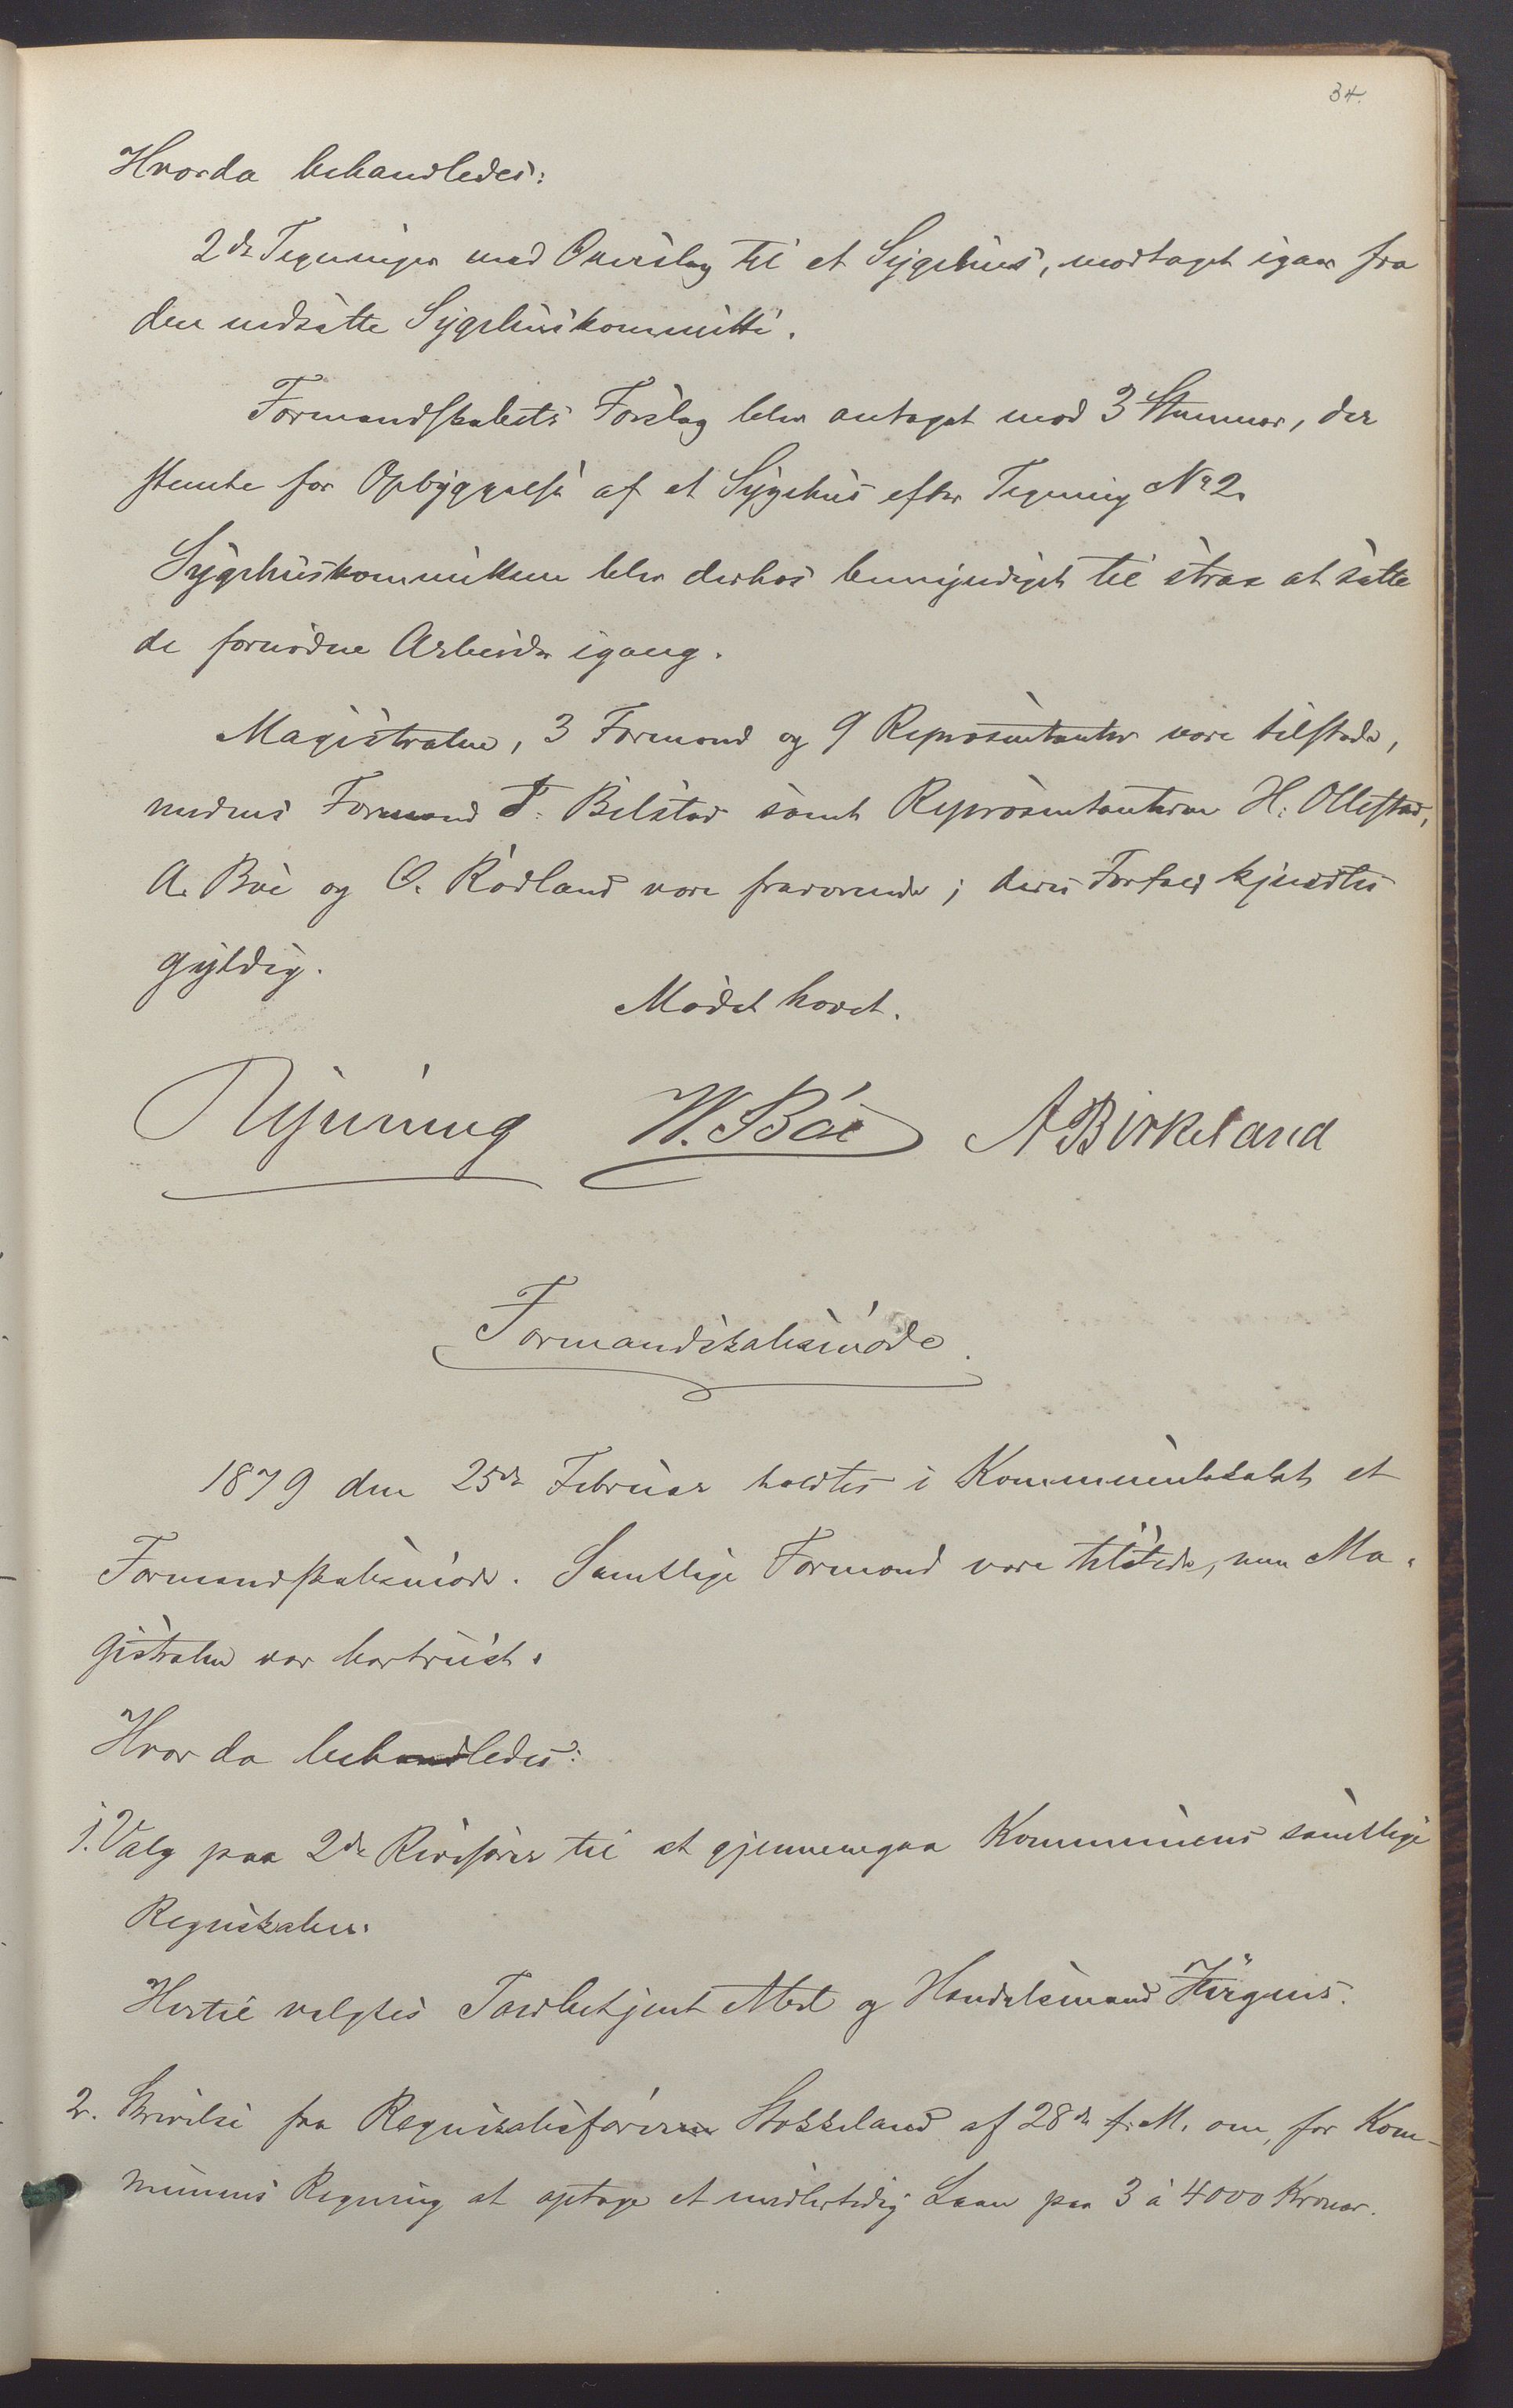 34.
Hvorda behandledes:
2de Tegninger med Overslag til et Sygehus, modtaget igaar fra
den nedsatte Sygehuskommitte.
Formandskabets Forslag blev antaget mod 3 Stemmer, der
stemte for Opbyggelse af et Sygehus efter Tegning No 2.
Sygehuskommitteen blev derhos bemyndiget til strax at sætte
de fornødne Arbeider igang.
Magistraten, 3 Formænd og 9 Repræsentanter vare tilstede,
medens Formand T. Bilstad samt Repræsentanterne H. Ollestad,
A. Bøe og O. Rødland vare fraværende; deres Forfald kjendtes
gyldig.
Mødet hævet.
W. Bøe A Birkeland
Formandskabsmøde.
1879 den 25de Februar holdtes i Kommunelokalet et
Formandskabsmøde. Samtlige Formænd vare tilstede, men Ma-
gistraten var bortreist.
Hvor da behandledes:
1. Valg paa 2de Revisorer til at gjennemgaa Kommunens samtlige
Regnskaber.
Hertil valgtes Toldbetjent og Handelsmand
2. Skrivelse fra Regnskabsføreren Stokkeland af 28de f. M. om, for Kom-
munens Regning at optage et midlertidig Laan paa 3 à 4000 Kroner.